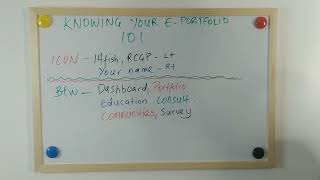 KNOWING YOUR E-PORTFOLIO
101
ICON - 14fish, RCGP - Lt
Your name - Rt
Btw - Dashboard, Portfolio
Education Consult
Communities, Survey